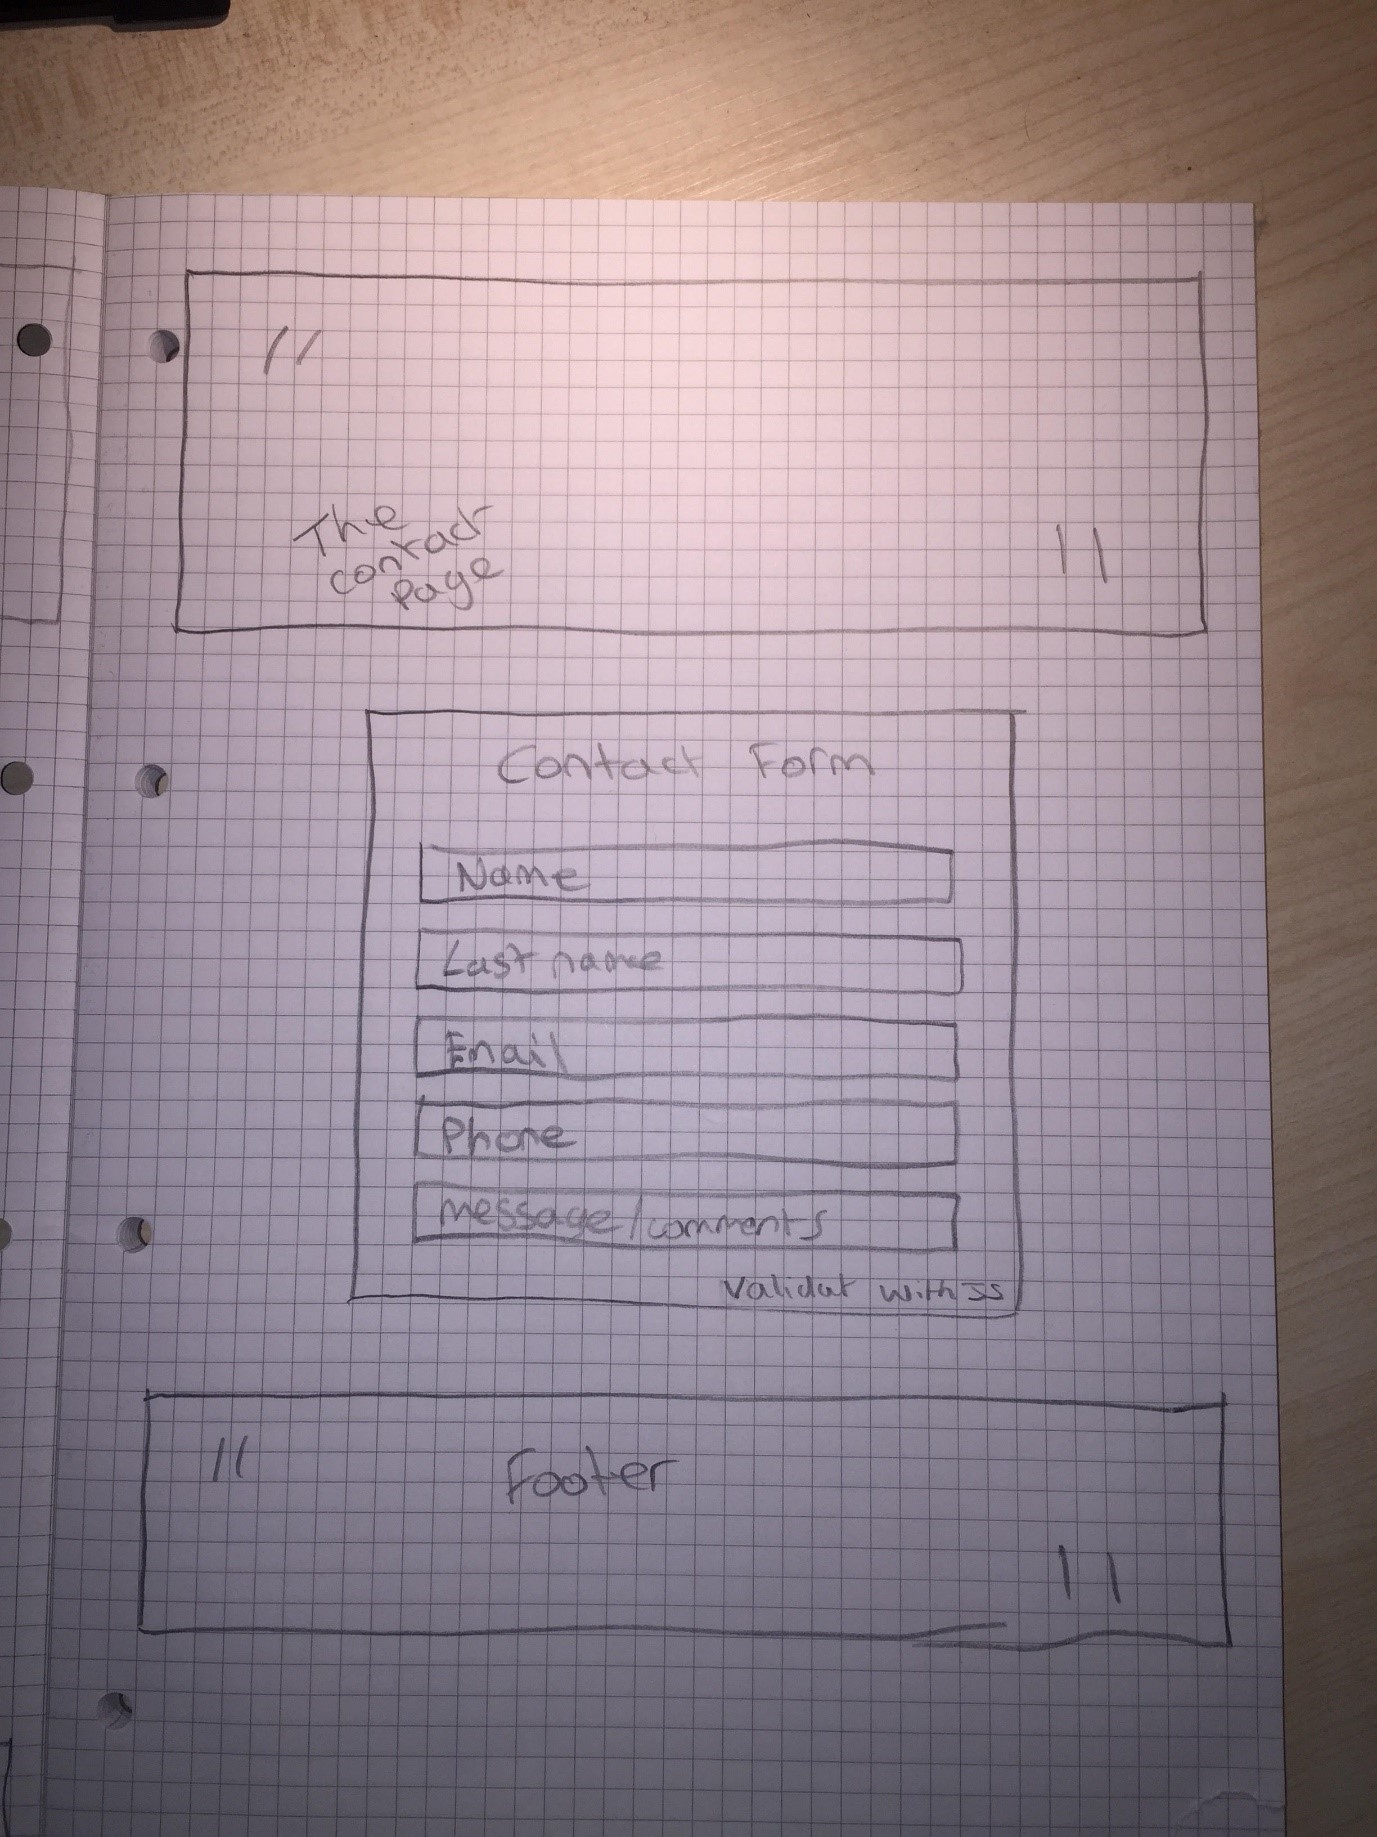 //
The
contact
Page
||
Contact Form
Name
Last name
Email
Phone
message/comments
Validat with JS
//
Footer
||